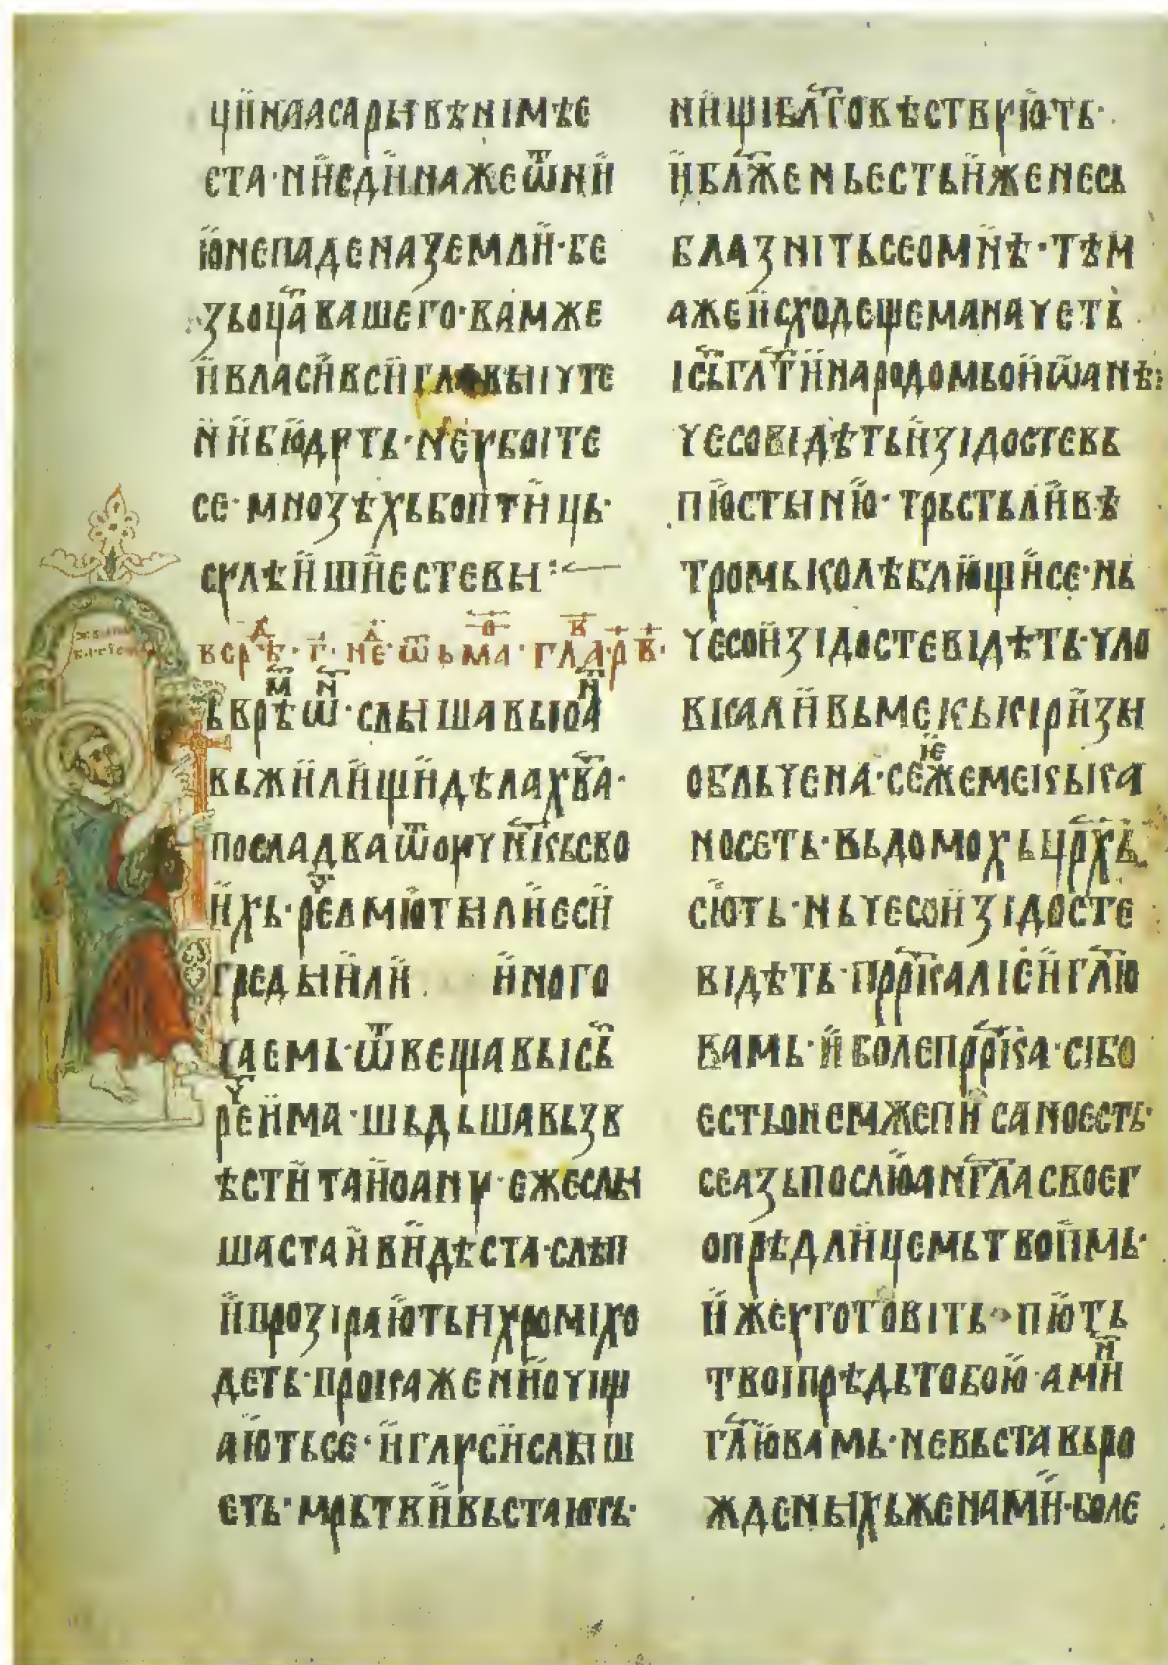 ціи на асары вѣнімѣе
ста· ни едина же ѿ ни
ю не паде на земли· бе
зь оца вашего· вам же
и власи вси главы іуте
ни бюдуть· не убоіте
се· мнозѣхь бо птиць·
сулѣиши есте вы :
в срѣ· г· не· ѿ ьма· гла· р в·
ь врѣ ѿ· слышавь юа
вь жилищи дѣла хва·
посла два ѿ оучнкь сво
ихь· рече емю ты ли еси
гредыи ли иного
чаемь· ѿвещавь ісь
рече има· шьдьша вьзв
ѣстита иоану· еже слы
шаста и видѣста· слѣп
и прозірають и хроми хо
деть· прокажени очищ
ають се· и глуси слыш
еть· мрьтви вьстають·
нищі блговѣствують·
и блжень есть иже не сь
блазніть се о мнѣ· тѣм
а же исходещема начеть
ісь глти народомь о иѡанѣ:
чесо відѣть изідосте вь
пюстыню· трьсть ли вѣ
тромь колѣблющи се· нь
чесо изідосте відѣть· чло
віка ли вь мекькі ризы
обльчена· се иже мекька
носеть· вь домохь црхь
сють· нь чесо изідосте
відѣть· пррка лі еи глю
вамь· и боле пррка· сі бо
есть о нем же писано есть·
се азь послю англа своег
о прѣд лицемь твоимь·
иже уготовіть пють
твоі прѣдь тобою· амин
глю вамь· не вьста вь ро
жденыхь женами· боле